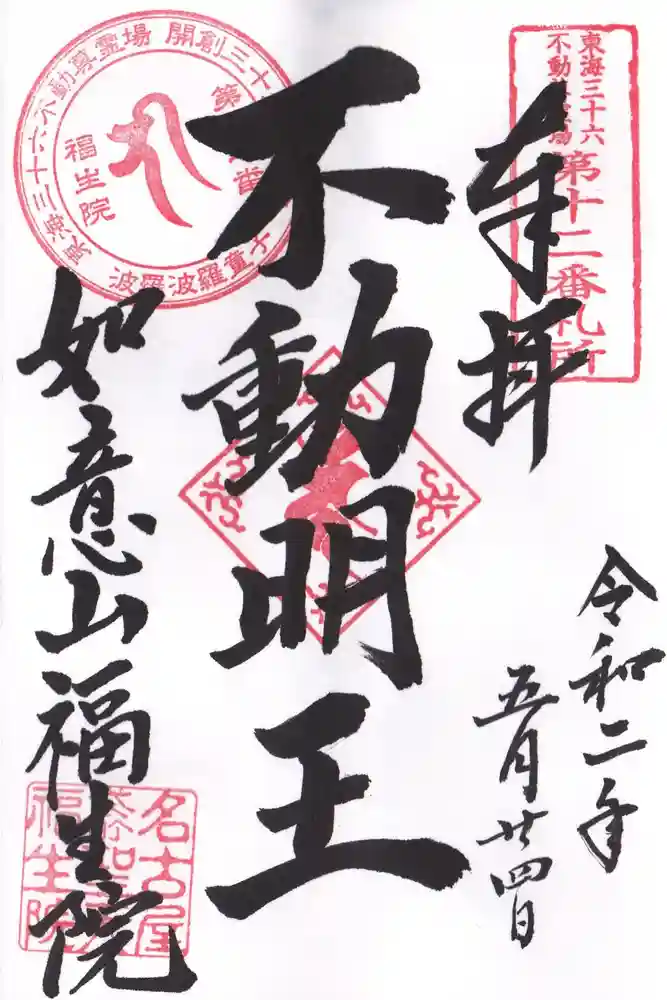 東海三十六
不動尊霊場
第十二番札所
奉拝
令和二年
五月廿四日
不動明王
東海三十六不動尊霊場 開創三十
第
番
福生院
波羅波羅童子
如意山福生院
名古屋
福生院